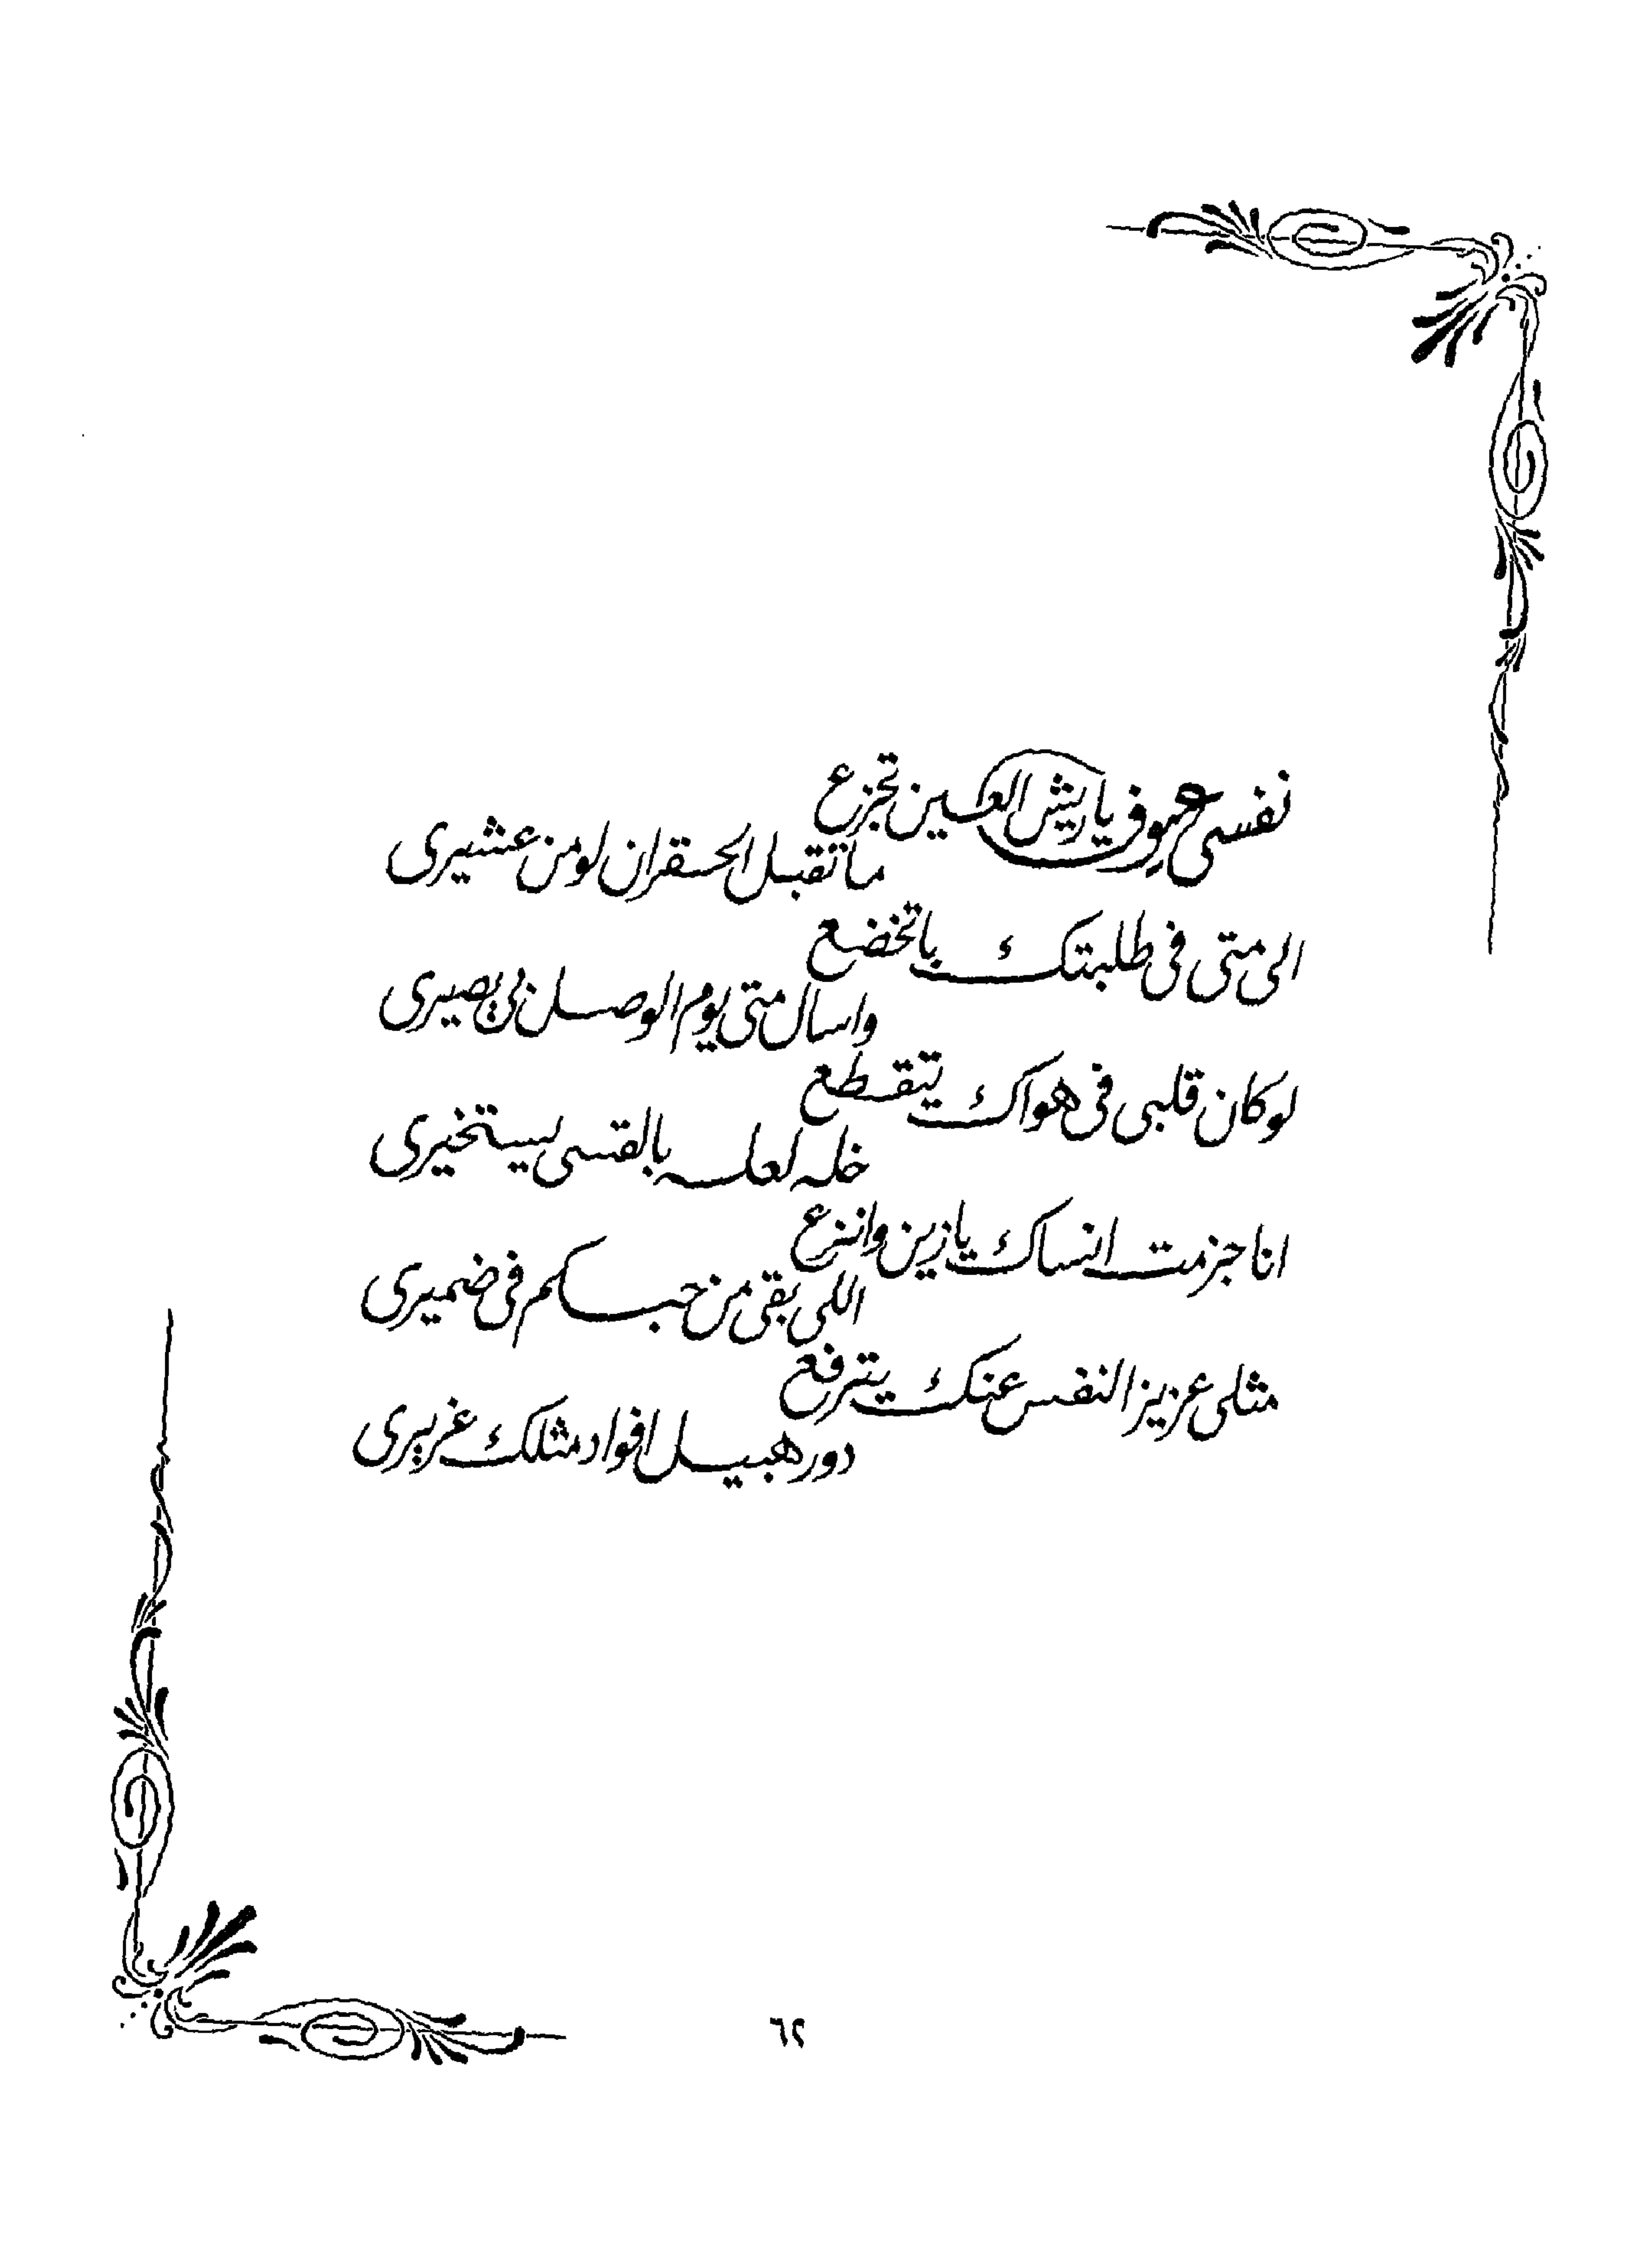 نفسى عيوف ياريش العين تجزع
ماتقبل الحقران لو من عشيرى
الى متى فى طلبتك باتخضع
واسال متى يوم الوصل بى يصيرى
لو كان قلبى فى هواك يتقطع
خله لعله بالقسى يستخيرى
انا جزمت انساك يازين وانزع
اللى بقى من حبكم فى ضميرى
مثلى عزيز النفس عنك يترفع
دور هبيل افواد مثلك غريرى
٦٢